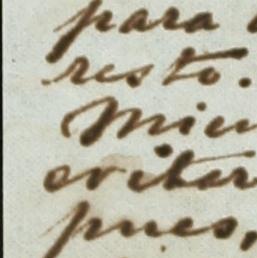 para
resto.
Mien
evitar
pues,